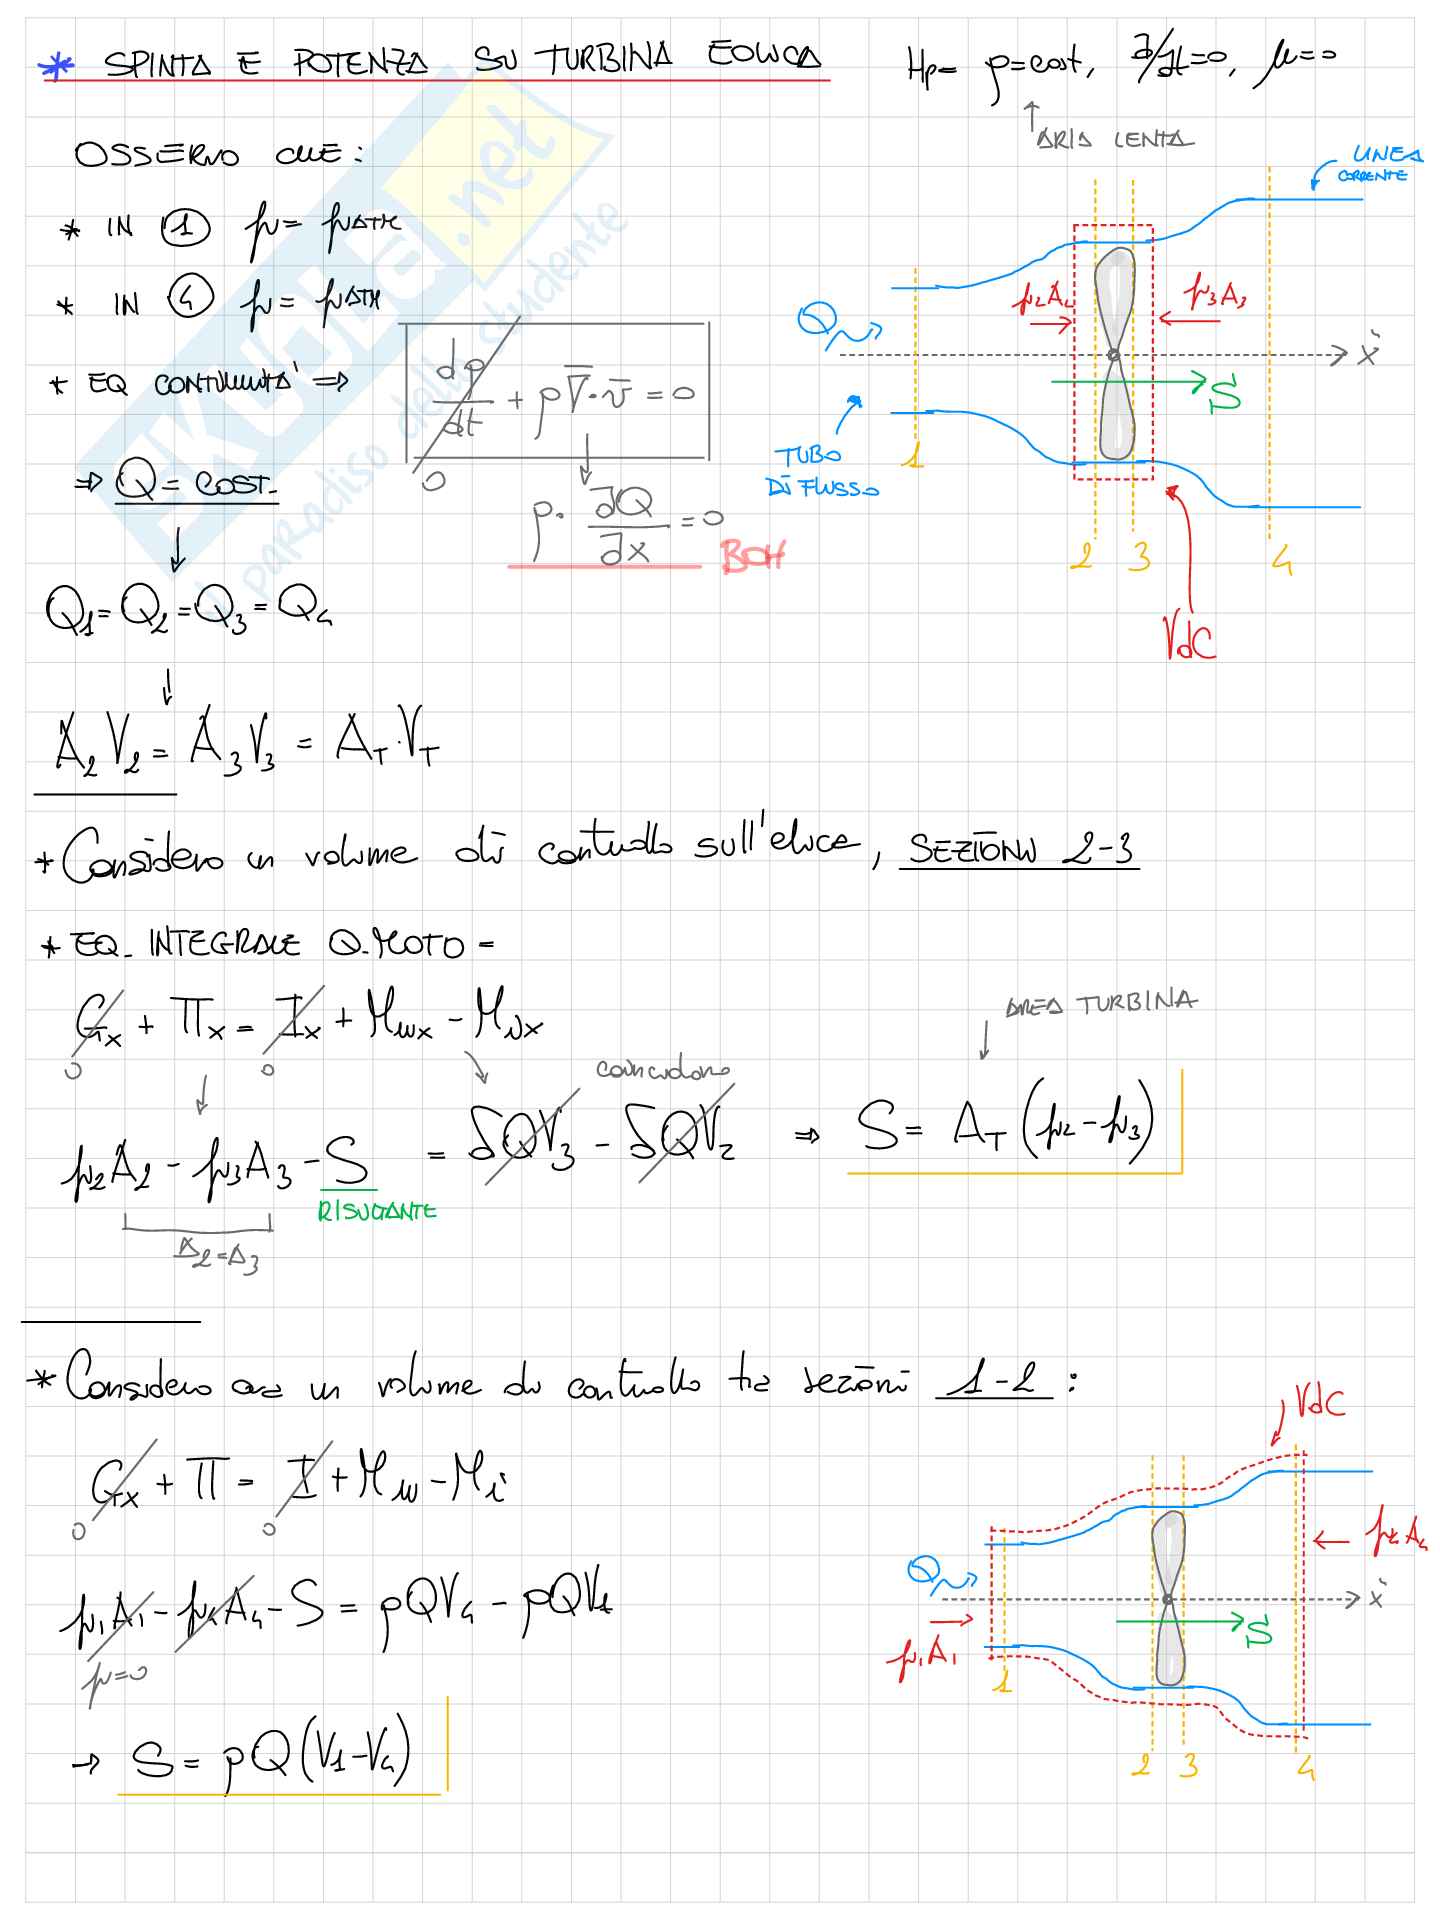 * SPINTA E POTENZA SU TURBINA EOLICA
Hp= ρ=cost, ∂/∂t=0, μ=0
↑ ARIA LENTA
OSSERVO CHE:
* IN ① p = pATM
* IN ④ p = pATM
* EQ CONTINUITA' ⇒
dρ/dt + ρ∇̄·v̄ = 0
0
ρ· ∂Q/∂x = 0 BOH
⇒ Q = COST.
Q1 = Q2 = Q3 = Q4
A2 V2 = A3 V3 = AT · VT
LINEA
CORRENTE
Q
p2A2
p3A3
x
S
TUBO
DI FLUSSO
1
2
3
4
VdC
* Considero un volume di controllo sull'elica, SEZIONI 2-3
* EQ. INTEGRALE Q.MOTO =
Gx + Πx = Ix + Mux - Mix
0
0
AREA TURBINA
coincidono
p2A2 - p3A3 - S = ρQV3 - ρQV2 ⇒ S = AT (p2 - p3)
RISULTANTE
A2=A3
* Considero ora un volume di controllo tra sezioni 1-2 :
Gx + Π = I + Mu - Mi
0
0
p1A1 - p4A4 - S = ρQV4 - ρQV1
p=0
→ S = ρQ(V1-V4)
VdC
p4A4
Q
x
S
p1A1
1
2
3
4
SKUOLA.net
il paradiso dello studente